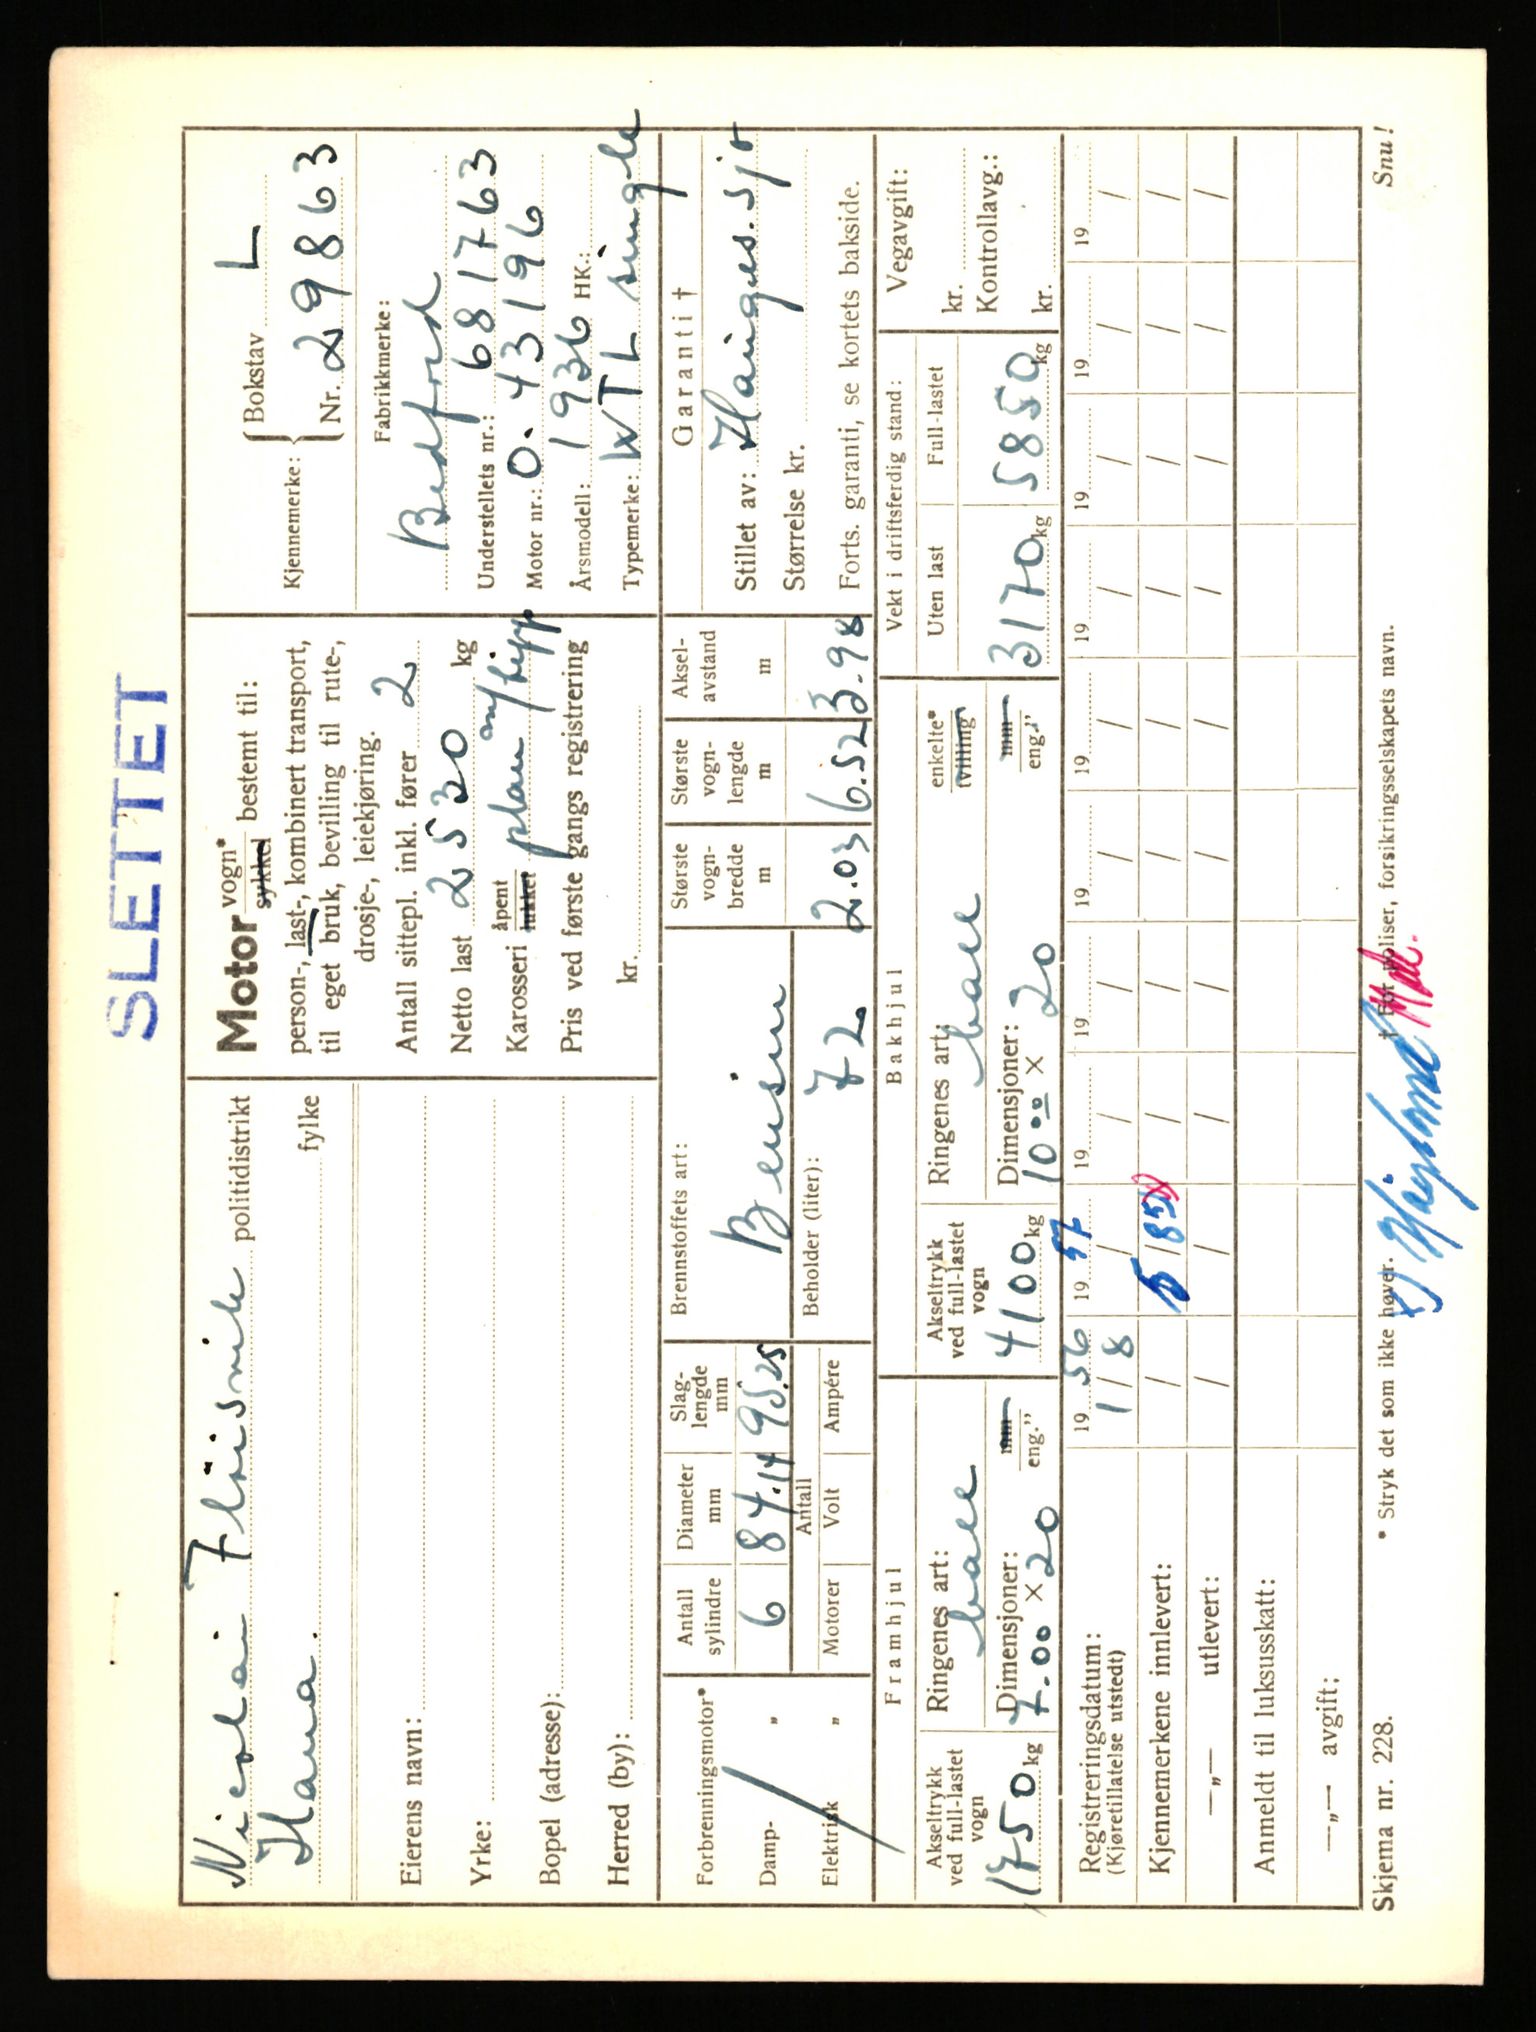 SLETTET
Nicolai politidistrikt
Hana. fylke
Eierens navn:
Yrke:
Bopel (adresse):
Herred (by):
Motor vogn* sykkel bestemt til:
person-, last-, kombinert transport,
til eget bruk, bevilling til rute-,
drosje-, leiekjøring.
Antall sittepl. inkl. fører 2
Netto last 2530 kg
Karosseri åpent lukket plan m/tipp
Pris ved første gangs registrering
kr.
Kjennemerke: Bokstav L
Nr. 29863
Fabrikkmerke:
Bedford
Understellets nr.: 681763
Motor nr.: 0.43196
Årsmodell: 1936 HK.:
Typemerke: WTL single
Forbrenningsmotor*
Damp- „
Elektrisk „
Antall sylindre
6
Diameter mm
84.14
Slag-lengde mm
95.25
Motorer
Antall
Volt
Ampére
Brennstoffets art:
Bensin
Beholder (liter): 72
Største vogn-bredde m
2.03
Største vogn-lengde m
6.52
Aksel-avstand m
3.98
Garanti †
Stillet av: Hauges. Sjø
Størrelse kr.
Forts. garanti, se kortets bakside.
Framhjul
Akseltrykk ved full-lastet vogn
1750 kg
Ringenes art:
Dimensjoner: mm eng.”
7.00 × 20
Bakhjul
Akseltrykk ved full-lastet vogn
4100 kg
Ringenes art: enkelte* tvilling
Dimensjoner: mm eng.”
10.00 × 20
Vekt i driftsferdig stand:
Uten last
3170 kg
Full-lastet
5850 kg
Vegavgift:
kr.
Kontrollavg.:
kr.
Registreringsdatum: 19 56 19 57 19 19 19 19 19 19 19 19
(Kjøretillatelse utstedt) 1/8 / / / / / / / / /
Kjennemerkene innlevert: / / / / / / / / /
—„— utlevert: / / / / / / / / / /
Anmeldt til luksusskatt:
—„— avgift:
Skjema nr. 228.
* Stryk det som ikke høver.
† For poliser, forsikringsselskapets navn.
Snu!